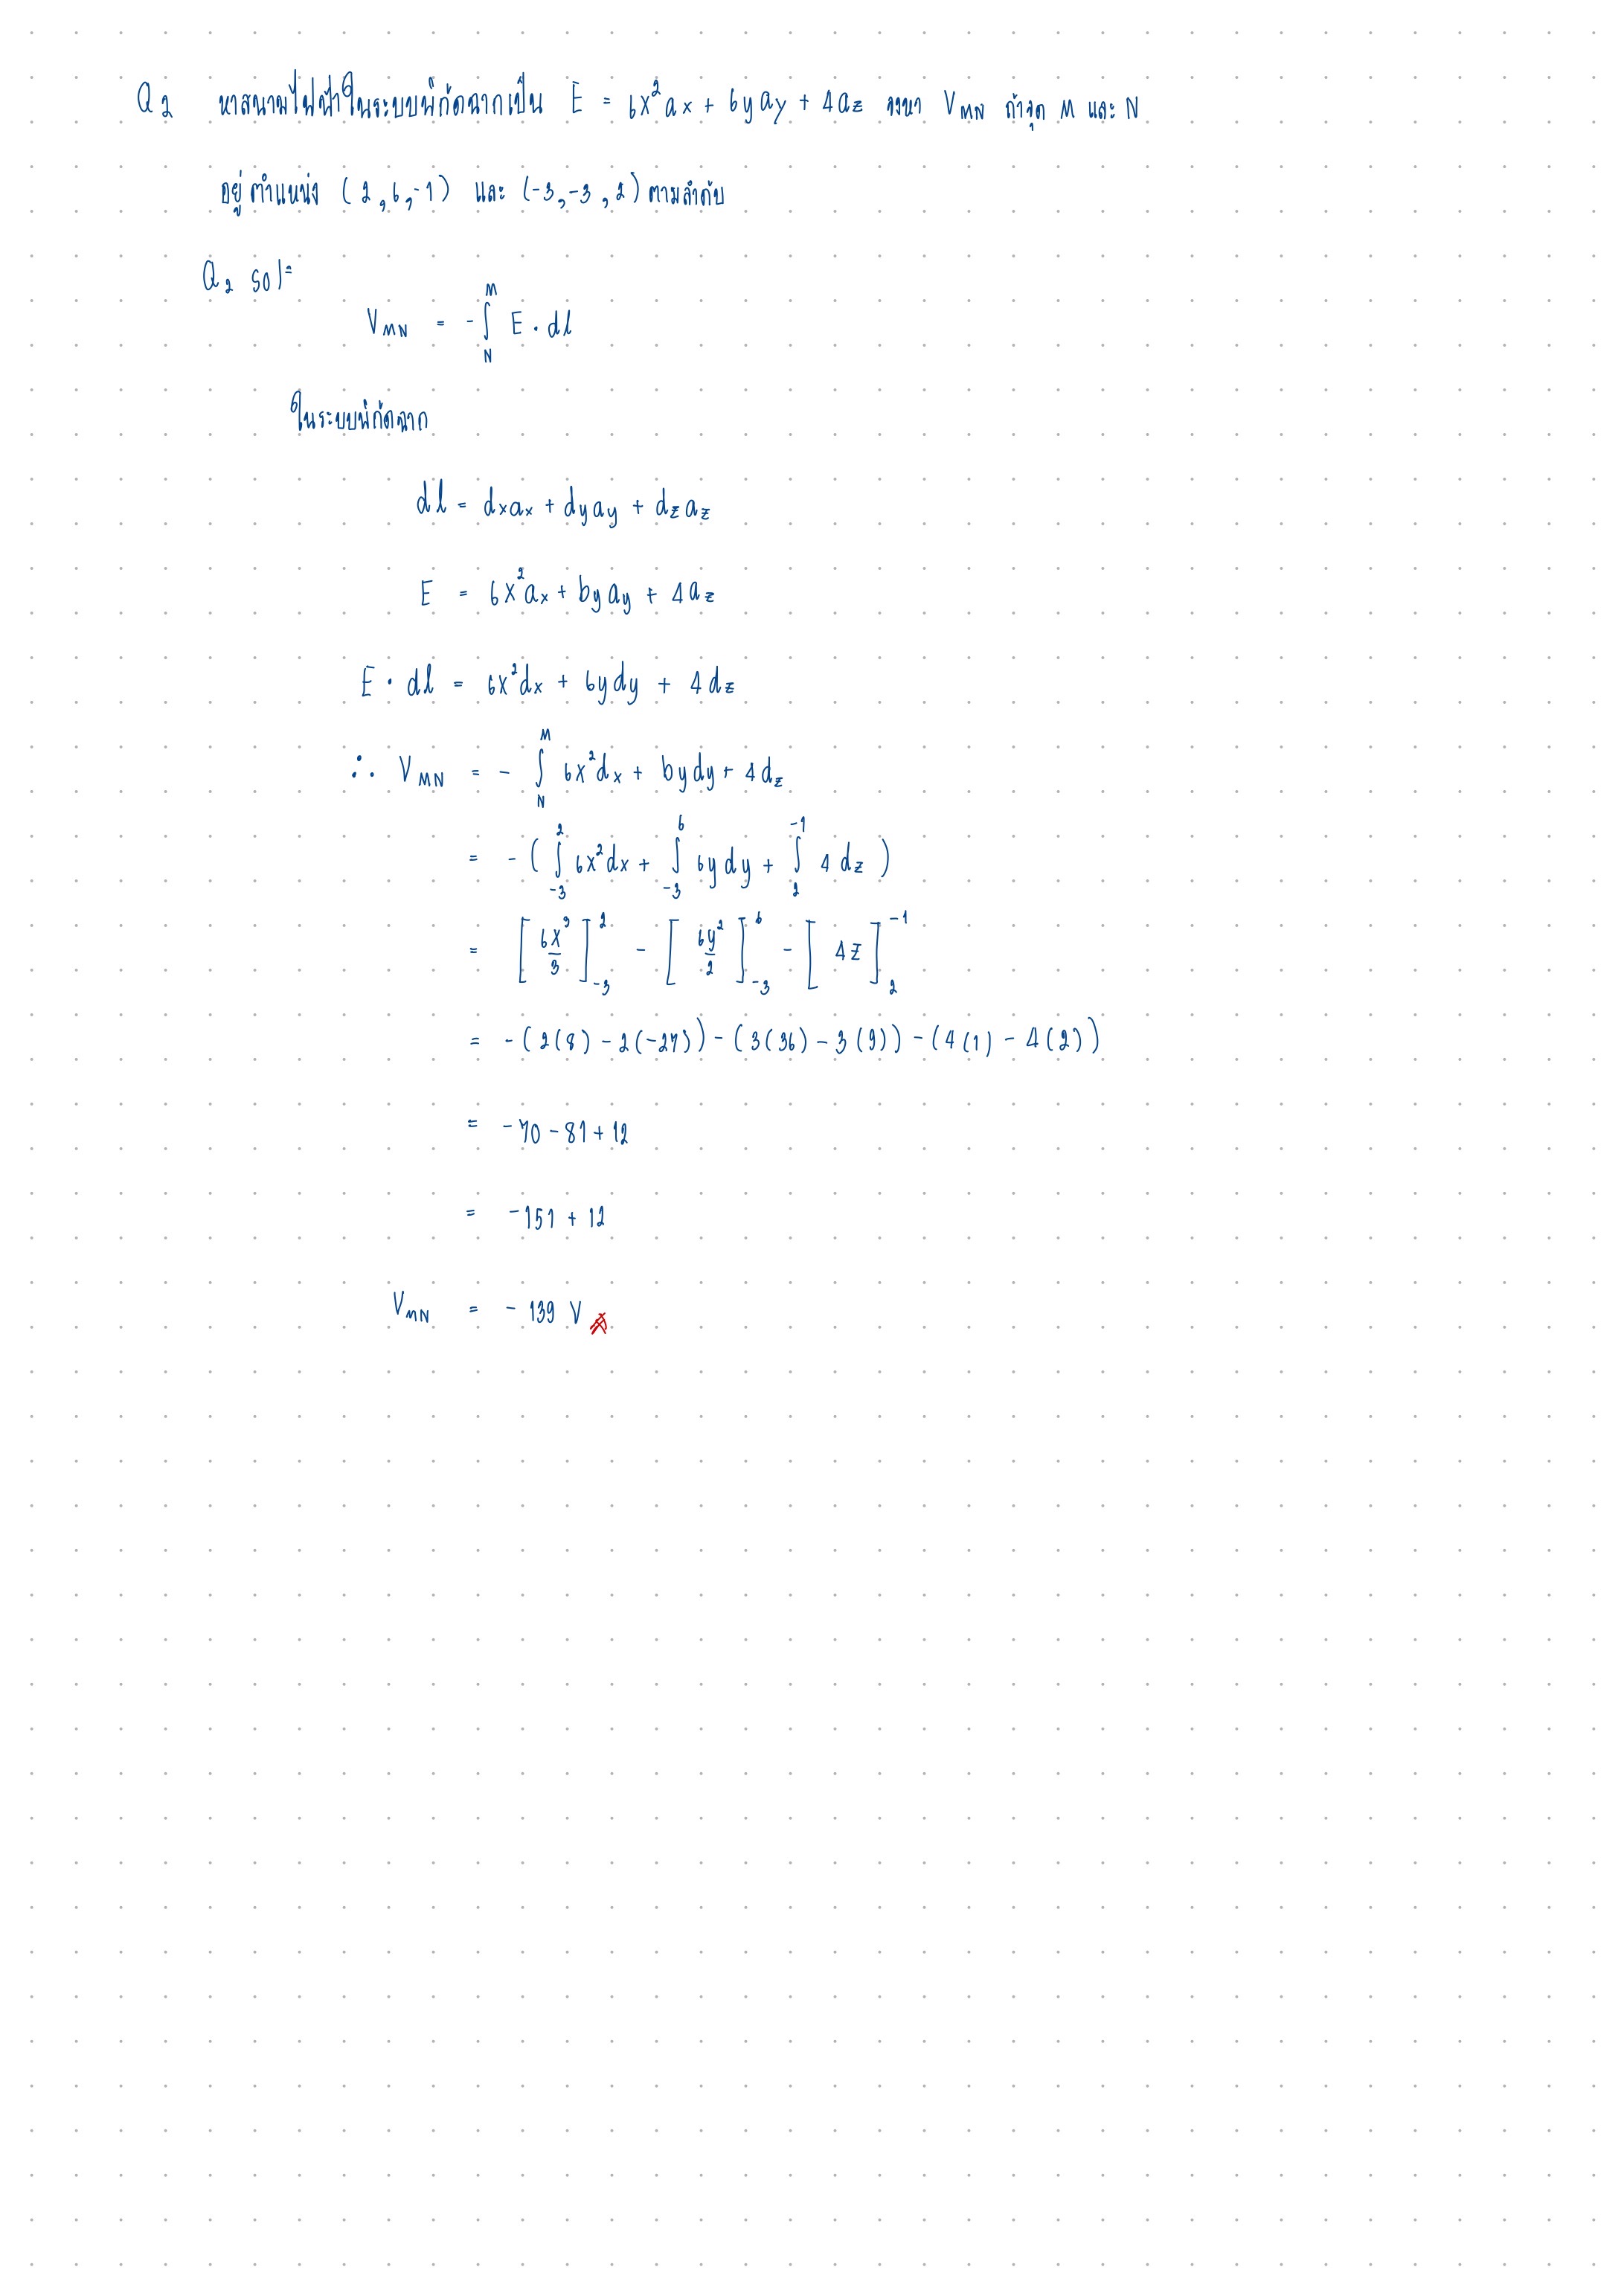 Q2 หาสนามไฟฟ้าในระบบพิกัดฉากเป็น E = 6x² ax + 6y ay + 4az จงหา V_MN ถ้าจุด M และ N
อยู่ตำแหน่ง (2,6,-1) และ (-3,-3,2) ตามลำดับ
Q2 sol=
V_MN = -∫_N^M E · dl
ในระบบพิกัดฉาก
dl = dxax + dyay + dzaz
E = 6x²ax + 6yay + 4az
E · dl = 6x²dx + 6ydy + 4dz
∴ V_MN = - ∫_N^M 6x²dx + 6ydy + 4dz
= - ( ∫_-3^2 6x²dx + ∫_-3^6 6ydy + ∫_2^-1 4dz )
= [ 6x³/3 ]_-3^2 - [ 6y²/2 ]_-3^6 - [ 4z ]_2^-1
= -(2(8) - 2(-27)) - (3(36) - 3(9)) - (4(1) - 4(2))
= -70 - 81 + 12
= -151 + 12
V_MN = - 139 V